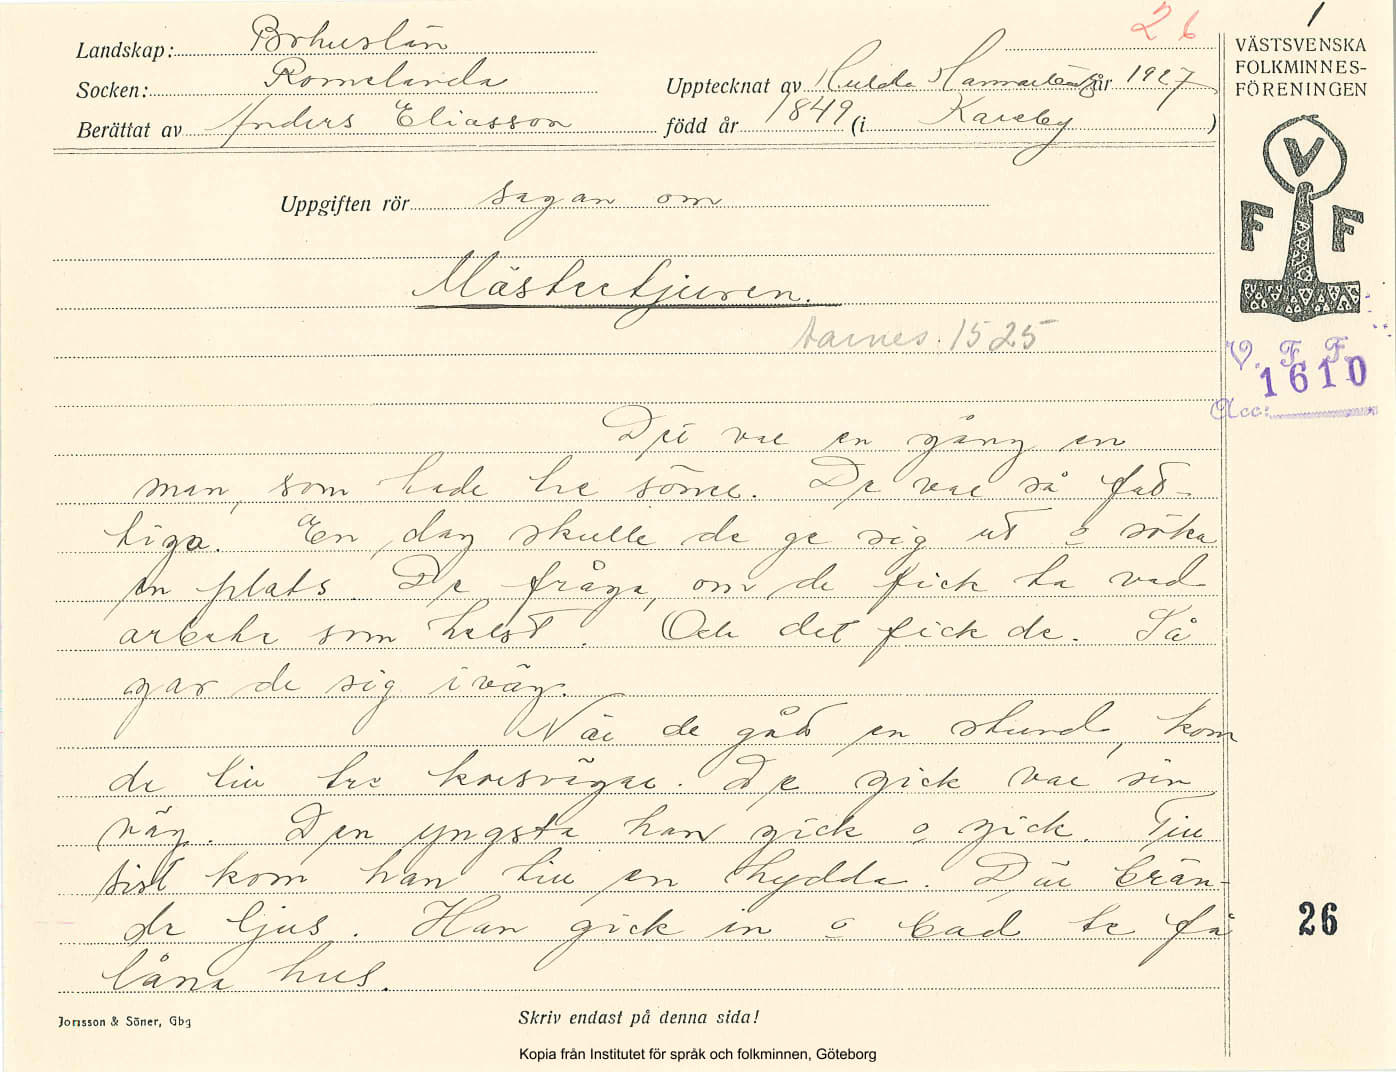 26
1
Landskap: Bohuslän
Socken: Romelanda
Upptecknat av Hulda Hammarbäck år 1927
Berättat av Anders Eliasson född år 1849 (i Kareby)
VÄSTSVENSKA
FOLKMINNES-
FÖRENINGEN
V
F F
Uppgiften rör sagan om
Mästertjuven.
Aarnes. 1525
V. F. F.
1610
Acc:
Det var en gång en
man, som hade tre söner. De var så fat-
tiga. En dag skulle de ge sig ut o söka
en plats. De fråga, om de fick ta vad
arbete som helst. Och det fick de. Så
gav de sig iväg.
När de gått en stund, kom
de till tre korsvägar. De gick var sin
väg. Den yngsta han gick o gick. Till
sist kom han till en hydda. Där brän-
de ljus. Han gick in o bad te få
låna hus.
26
Jonsson & Söner, Gbg
Skriv endast på denna sida!
Kopia från Institutet för språk och folkminnen, Göteborg